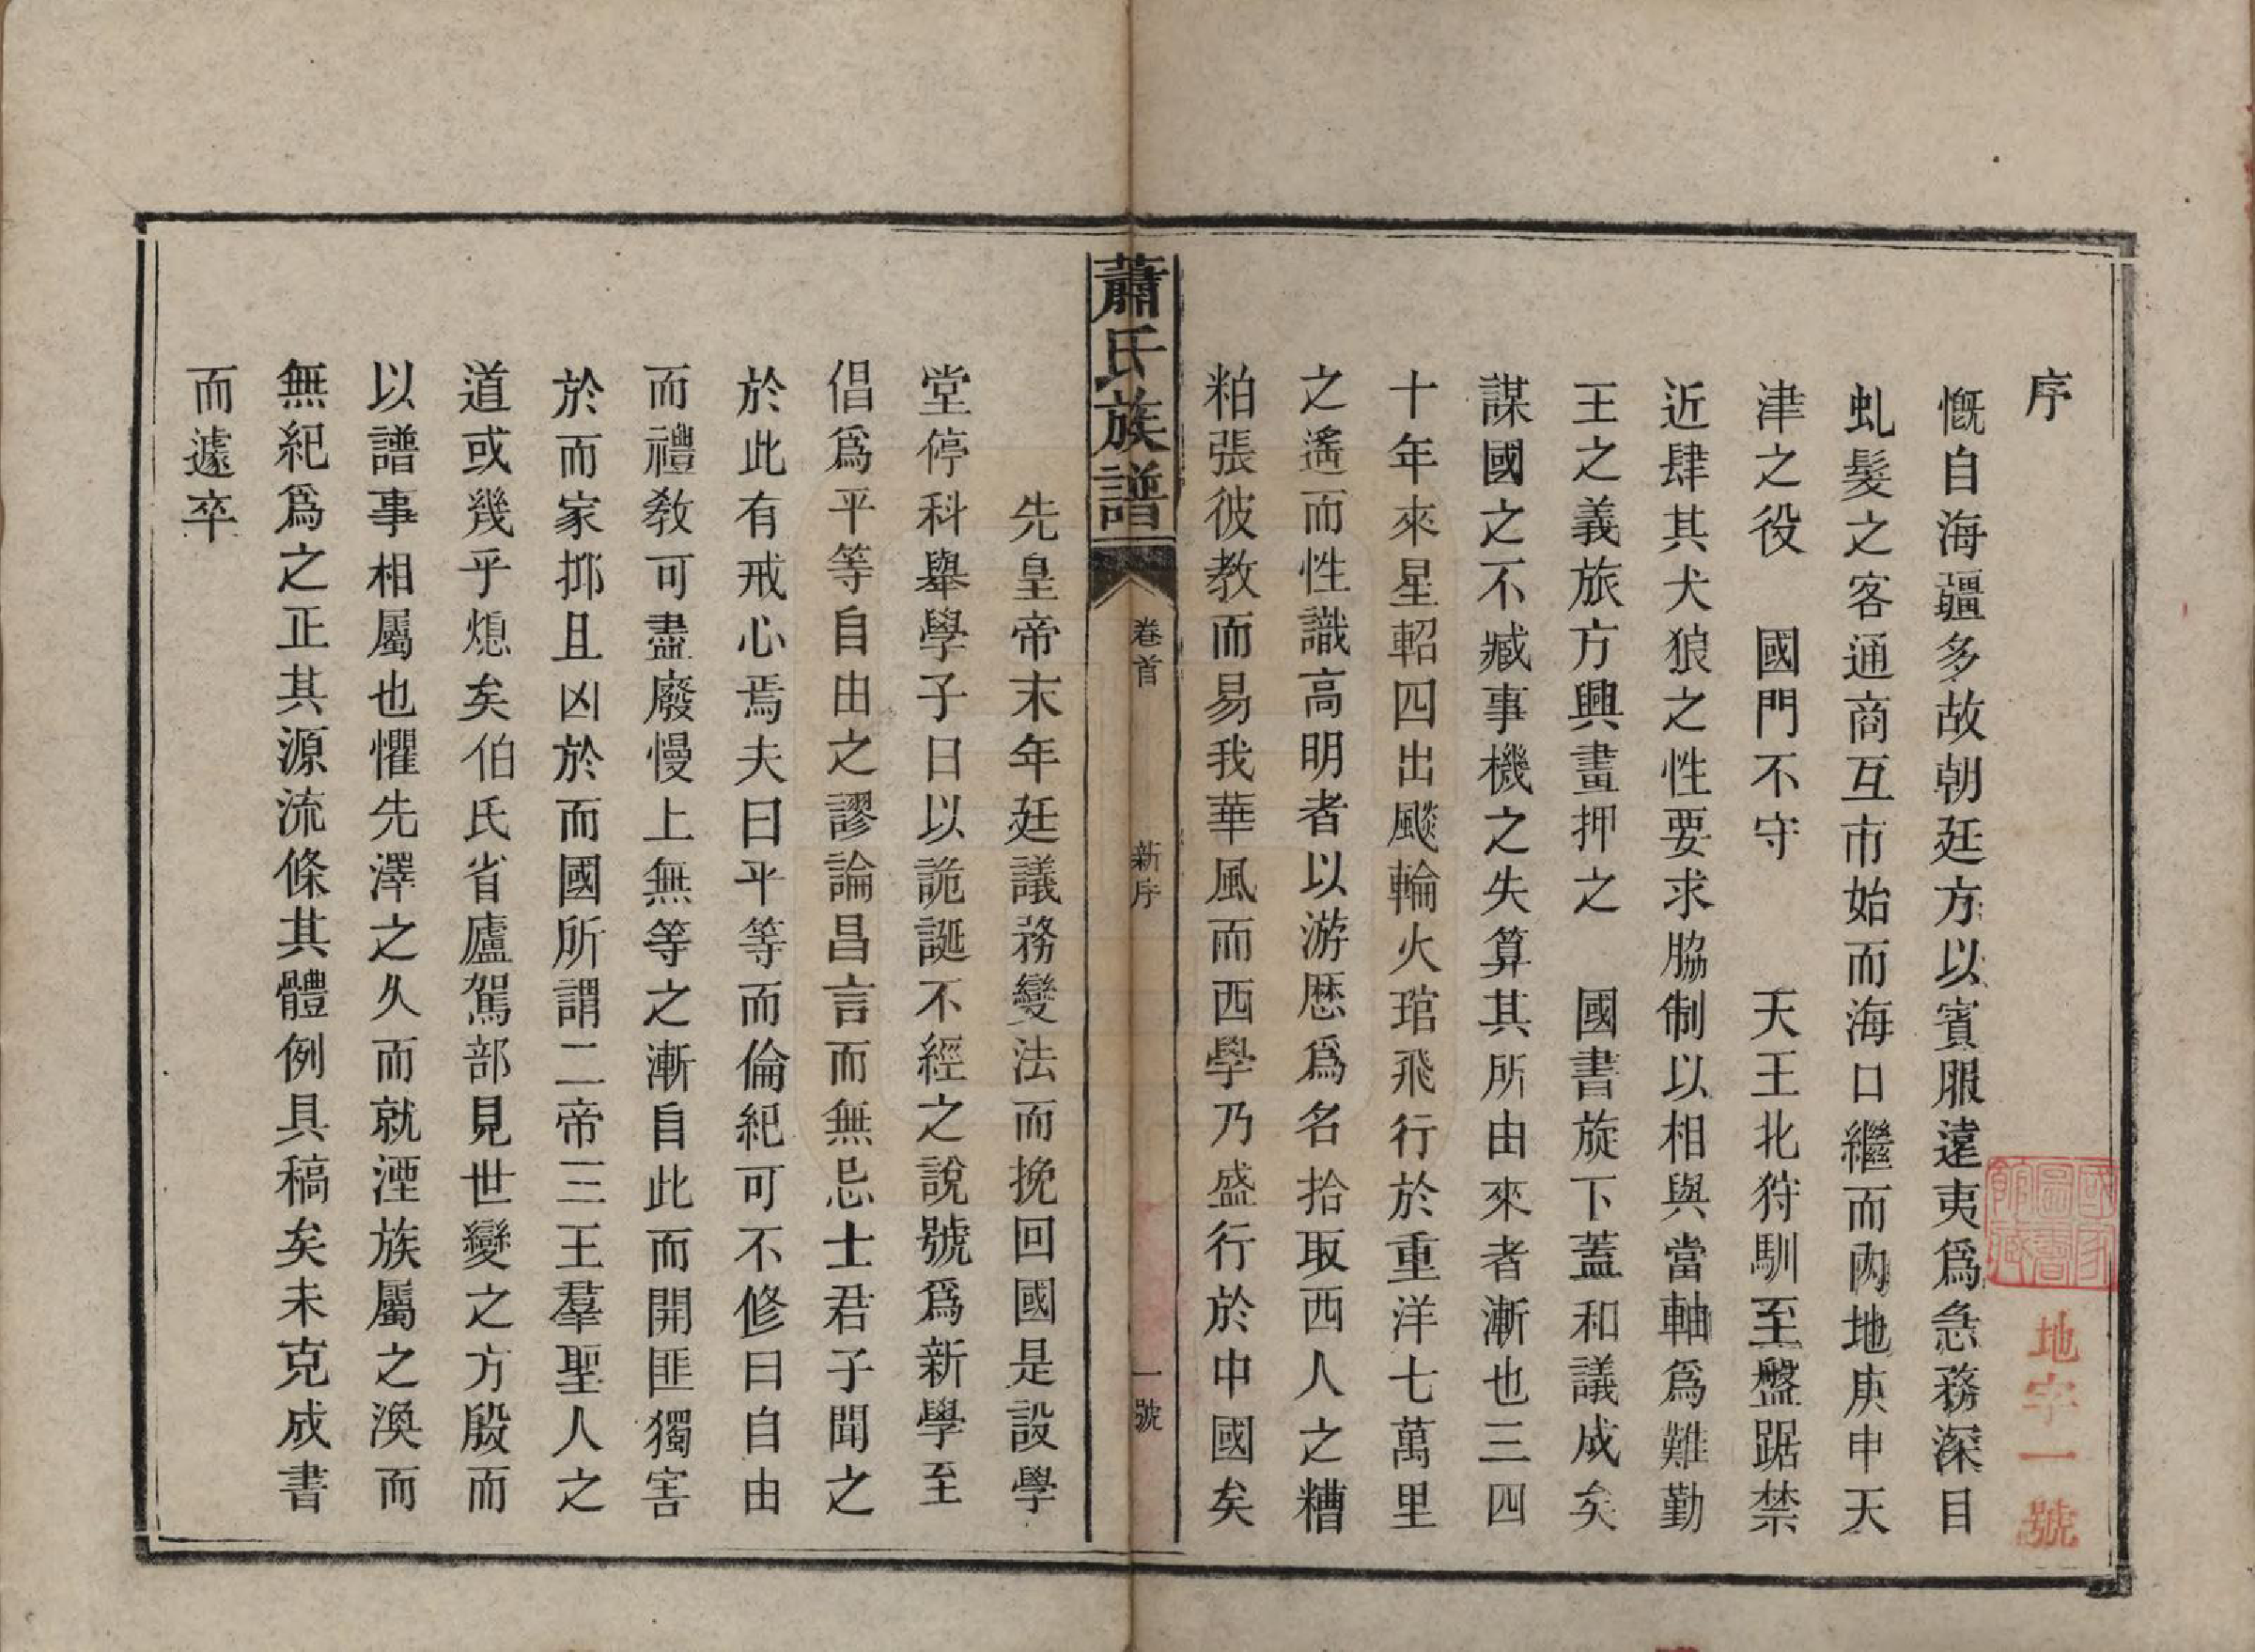 序
慨自海疆多故朝廷方以賓服遠夷爲急務深目
虬髮之客通商互市始而海口繼而內地庚申天
津之役　國門不守　　天王北狩馴至盤踞禁
近肆其犬狼之性要求脇制以相與當軸爲難勤
王之義旅方興畫押之　國書旋下蓋和議成矣
謀國之不臧事機之失算其所由來者漸也三四
十年來星軺四出颷輪火琯飛行於重洋七萬里
之遙而性識高明者以游歷爲名拾取西人之糟
粕張彼教而易我華風而西學乃盛行於中國矣
蕭氏族譜
卷首
新序
一號
先皇帝末年廷議務變法而挽回國是設學
堂停科舉學子日以詭誕不經之說號爲新學至
倡爲平等自由之謬論昌言而無忌士君子聞之
於此有戒心焉夫曰平等而倫紀可不修曰自由
而禮教可盡廢慢上無等之漸自此而開匪獨害
於而家抑且凶於而國所謂二帝三王羣聖人之
道或幾乎熄矣伯氏省廬駕部見世變之方殷而
以譜事相屬也懼先澤之久而就湮族屬之渙而
無紀爲之正其源流條其體例具稿矣未克成書
而遽卒
國家圖書館藏
地字一號